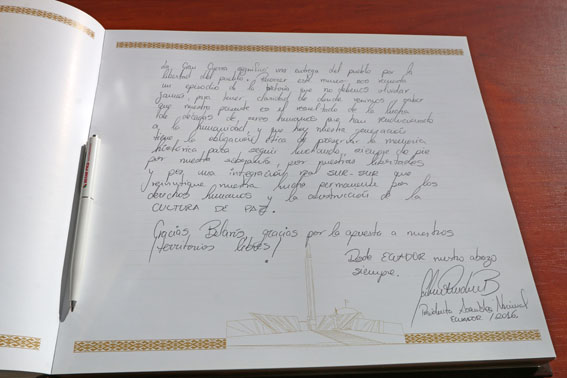 La Gran Guerra significó una entrega del pueblo por la
libertad del pueblo. Conocer este museo nos recuerda
un episodio de la historia que no debemos olvidar
jamás, para tener claridad de donde venimos y saber
que nuestro presente es el resultado de la lucha
de de seres humanos que han revolucionado
a la humanidad, y que hoy nuestra generación
tiene la obligación ética de preservar la memoria
histórica para seguir luchando, siempre de pie
por nuestra soberanía, por nuestras libertades
y por una integración real SUR-SUR que
reivindique nuestra lucha permanente por los
derechos humanos y la construcción de la
CULTURA DE PAZ.
Gracias, Belarús, gracias por la apuesta a nuestros
territorios libres!
Desde ECUADOR nuestro abrazo
siempre.
Presidenta Asamblea Nacional
ECUADOR / 2016